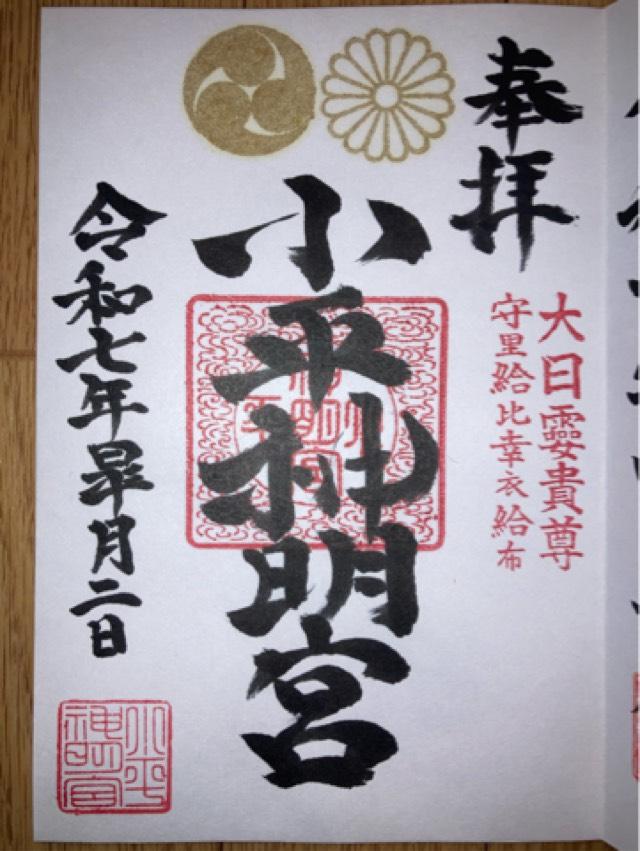 奉拝
大日孁貴尊
守里給比幸衣給布
小平神明宮
令和七年皐月二日
小平神明宮